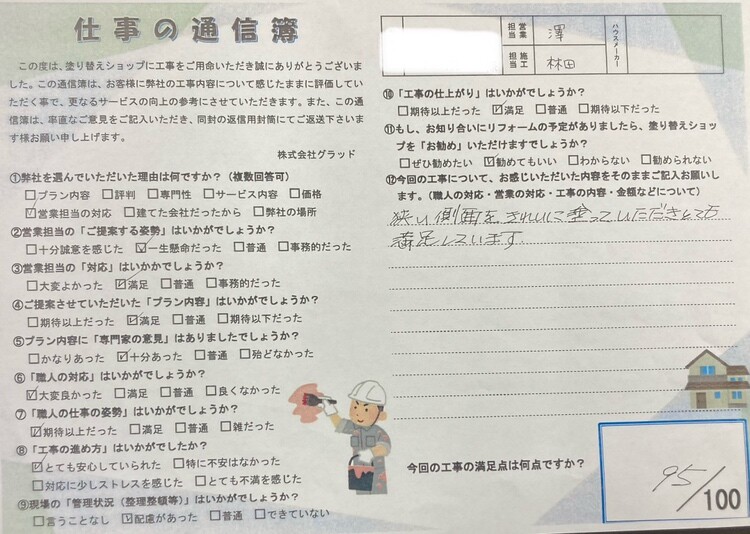 仕事の通信簿
この度は、塗り替えショップに工事をご用命いただき誠にありがとうございま
した。この通信簿は、お客様に弊社の工事内容について感じたままに評価してい
ただく事で、更なるサービスの向上の参考にさせていただきます。また、この通
信簿は、率直なご意見をご記入いただき、同封の返信用封筒にてご返送下さいま
す様お願い申し上げます。
株式会社グラッド
①弊社を選んでいただいた理由は何ですか？（複数回答可）
□プラン内容 □評判 □専門性 □サービス内容 □価格
☑営業担当の対応 □建てた会社だったから □弊社の場所
②営業担当の「ご提案する姿勢」はいかがでしょうか？
□十分誠意を感じた ☑一生懸命だった □普通 □事務的だった
③営業担当の「対応」はいかかでしょうか？
□大変よかった ☑満足 □普通 □事務的だった
④ご提案させていただいた「プラン内容」はいかがでしょうか？
□期待以上だった ☑満足 □普通 □期待以下だった
⑤プラン内容に「専門家の意見」はありましたでしょうか？
□かなりあった ☑十分あった □普通 □殆どなかった
⑥「職人の対応」はいかがでしょうか？
☑大変良かった □満足 □普通 □良くなかった
⑦「職人の仕事の姿勢」はいかがでしょうか？
☑期待以上だった □満足 □普通 □雑だった
⑧「工事の進め方」はいかがでしたか？
☑とても安心していられた □特に不安はなかった
□対応に少しストレスを感じた □とても不満を感じた
⑨現場の「管理状況（整理整頓等）」はいかがでしょうか？
□言うことなし ☑配慮があった □普通 □できていない
営業担当 澤
施工担当 林田
ハウスメーカー
⑩「工事の仕上がり」はいかがでしょうか？
□期待以上だった ☑満足 □普通 □期待以下だった
⑪もし、お知り合いにリフォームの予定がありましたら、塗り替えショッ
プを「お勧め」いただけますでしょうか？
□ぜひ勧めたい ☑勧めてもいい □わからない □勧められない
⑫今回の工事について、お感じいただいた内容をそのままご記入お願いし
ます。（職人の対応・営業の対応・工事の内容・金額などについて）
狭い側面をきれいに塗っていただきとても
満足しています
今回の工事の満足点は何点ですか？
95/100